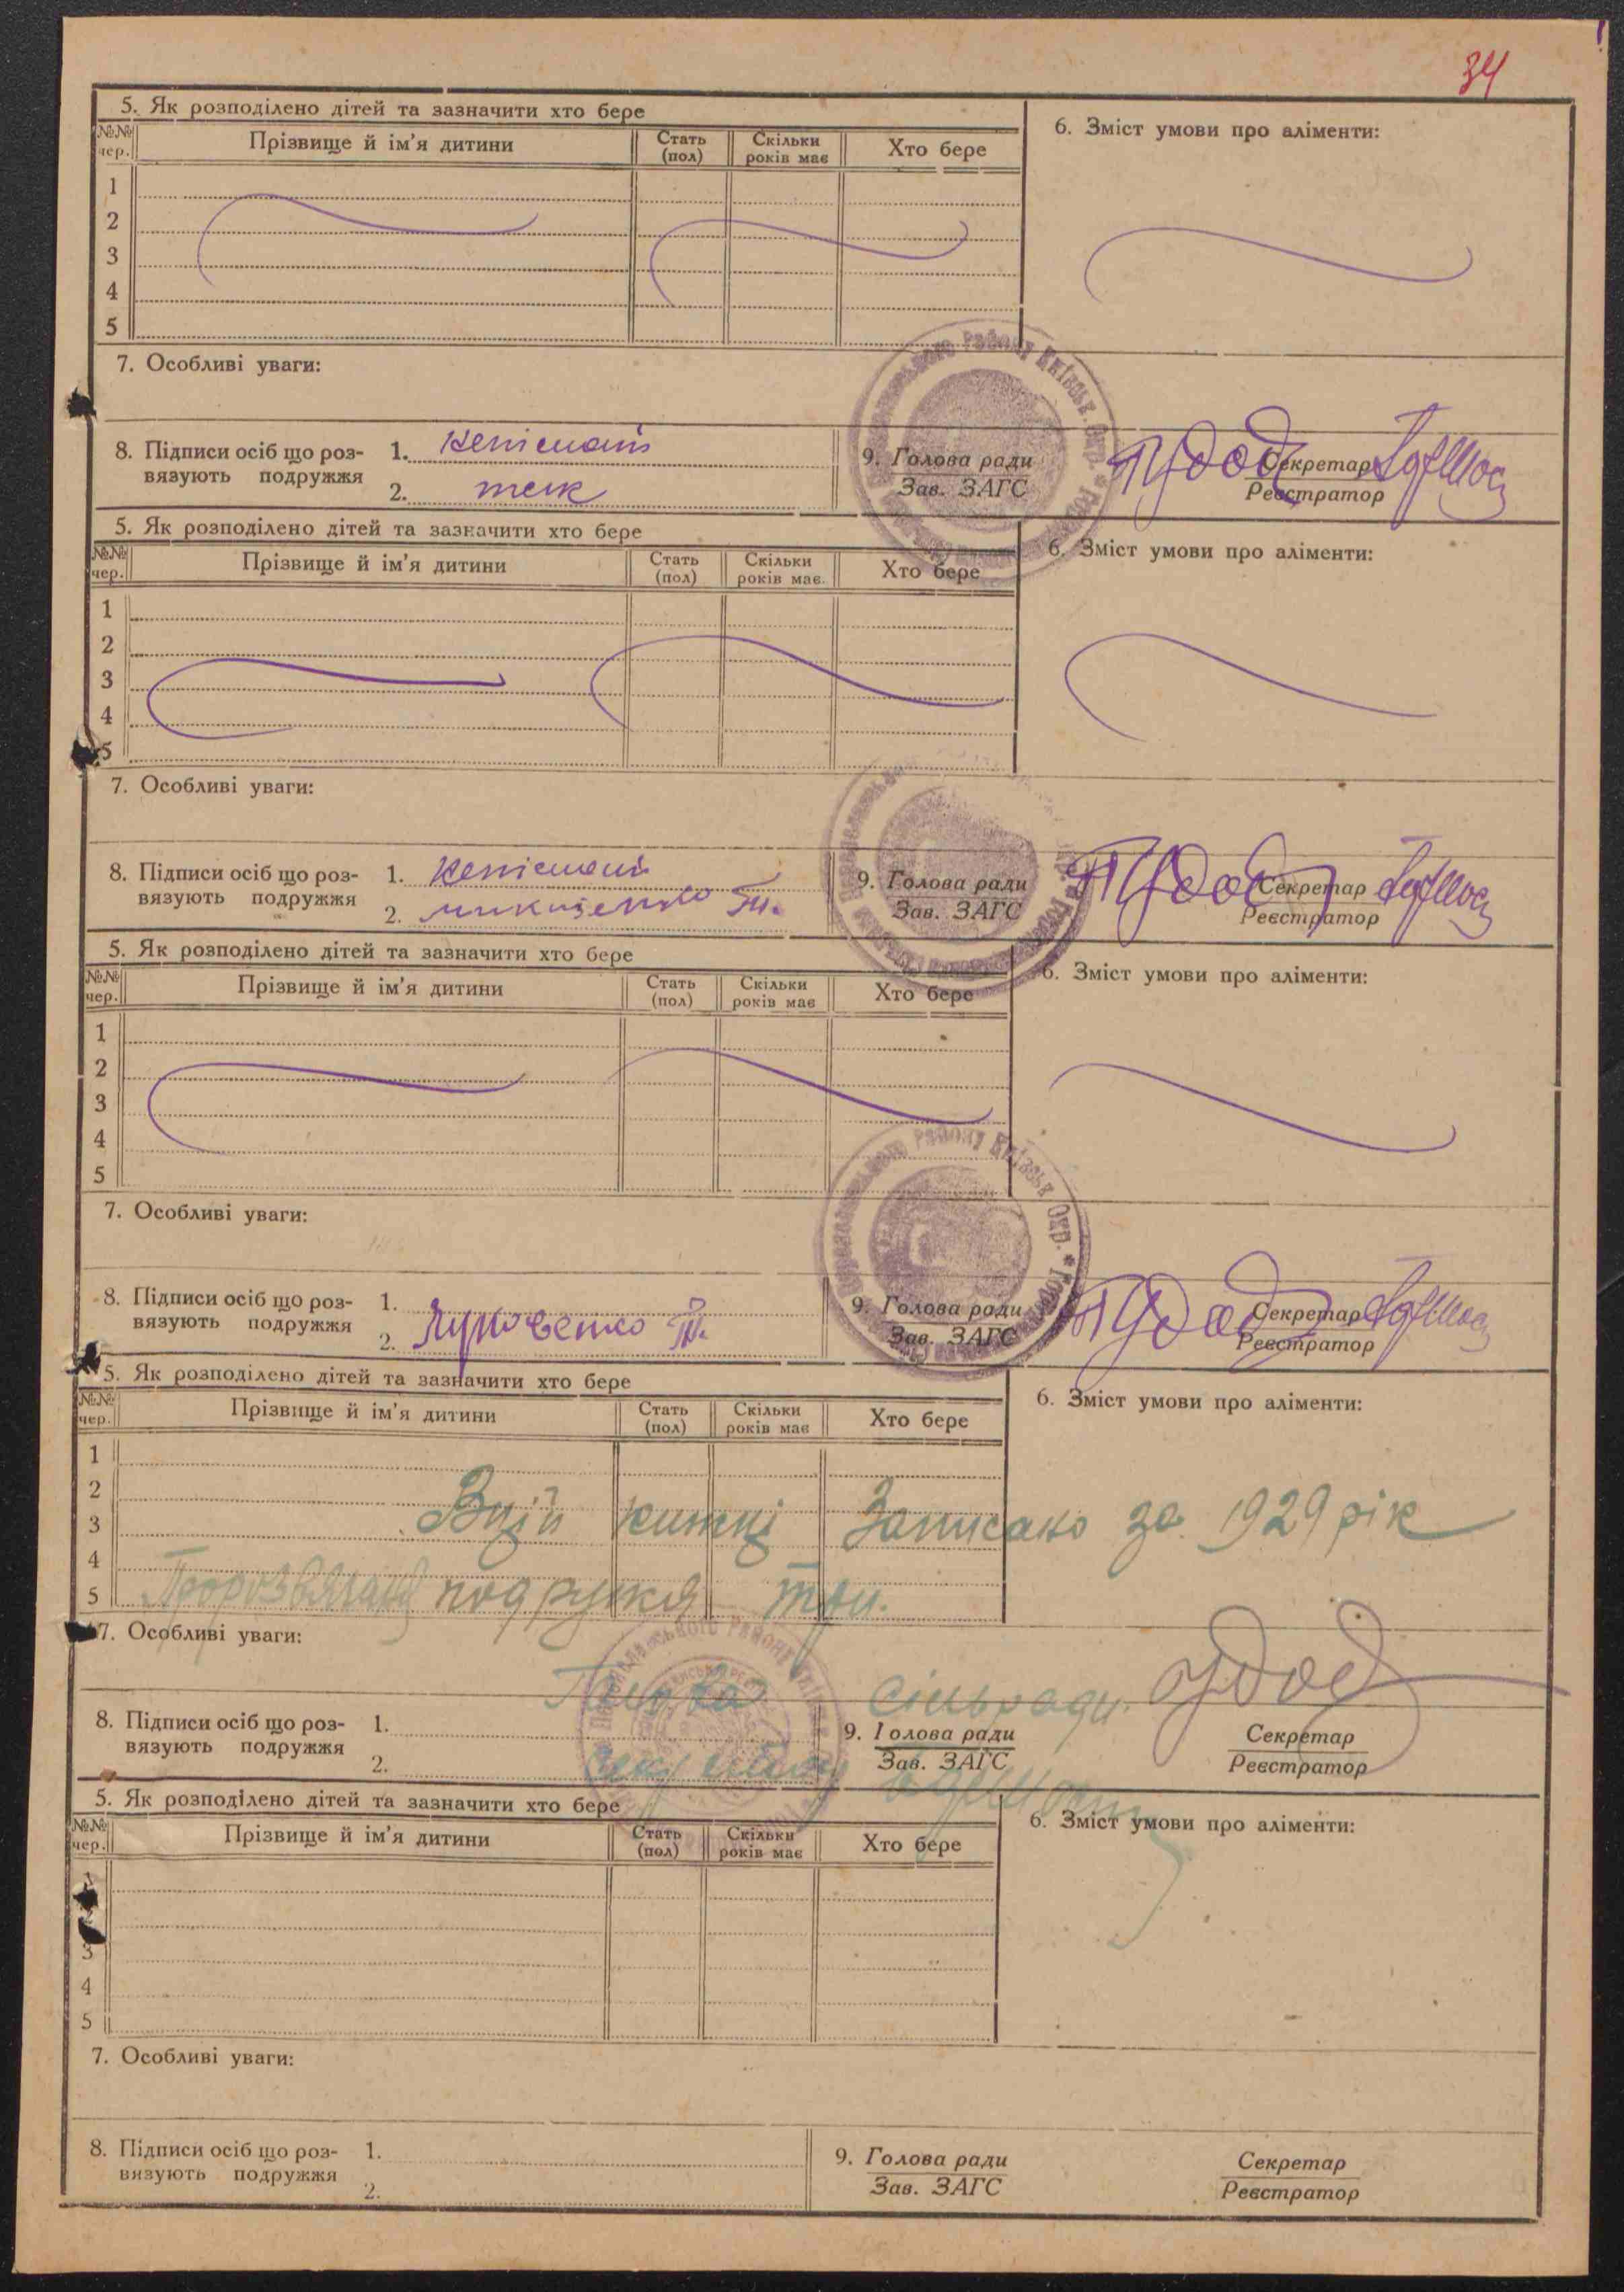 34
5. Як розподілено дітей та зазначити хто бере
6. Зміст умови про аліменти:
№№ чер. Прізвище й ім'я дитини Стать (пол) Скільки років має Хто бере
1
2
3
4
5
7. Особливі уваги:
8. Підписи осіб що роз-
вязують подружжя
1. неписьмені
2.
9. Голова ради
Зав. ЗАГС
Удод
Секретар
Реєстратор
5. Як розподілено дітей та зазначити хто бере
6. Зміст умови про аліменти:
№№ чер. Прізвище й ім'я дитини Стать (пол) Скільки років має. Хто бере
1
2
3
4
5
7. Особливі уваги:
8. Підписи осіб що роз-
вязують подружжя
1.
2. Микитенко
9. Голова ради
Зав. ЗАГС
Удод
Секретар
Реєстратор
5. Як розподілено дітей та зазначити хто бере
6. Зміст умови про аліменти:
№№ чер. Прізвище й ім'я дитини Стать (пол) Скільки років має Хто бере
1
2
3
4
5
7. Особливі уваги:
8. Підписи осіб що роз-
вязують подружжя
1.
2.
9. Голова ради
Зав. ЗАГС
Удод
Секретар
Реєстратор
5. Як розподілено дітей та зазначити хто бере
6. Зміст умови про аліменти:
№№ чер. Прізвище й ім'я дитини Стать (пол) Скільки років має Хто бере
1
2
3
4
5
Вцій книжці Записано за 1929 рік
Пророзвязання подружжя три.
7. Особливі уваги:
Голова сільради. Удод
8. Підписи осіб що роз-
вязують подружжя
1.
2.
9. Голова ради
Зав. ЗАГС
Секретар
Реєстратор
5. Як розподілено дітей та зазначити хто бере
6. Зміст умови про аліменти:
№№ чер. Прізвище й ім'я дитини Стать (пол) Скільки років має Хто бере
3
4
5
7. Особливі уваги:
8. Підписи осіб що роз-
вязують подружжя
1.
2.
9. Голова ради
Зав. ЗАГС
Секретар
Реєстратор